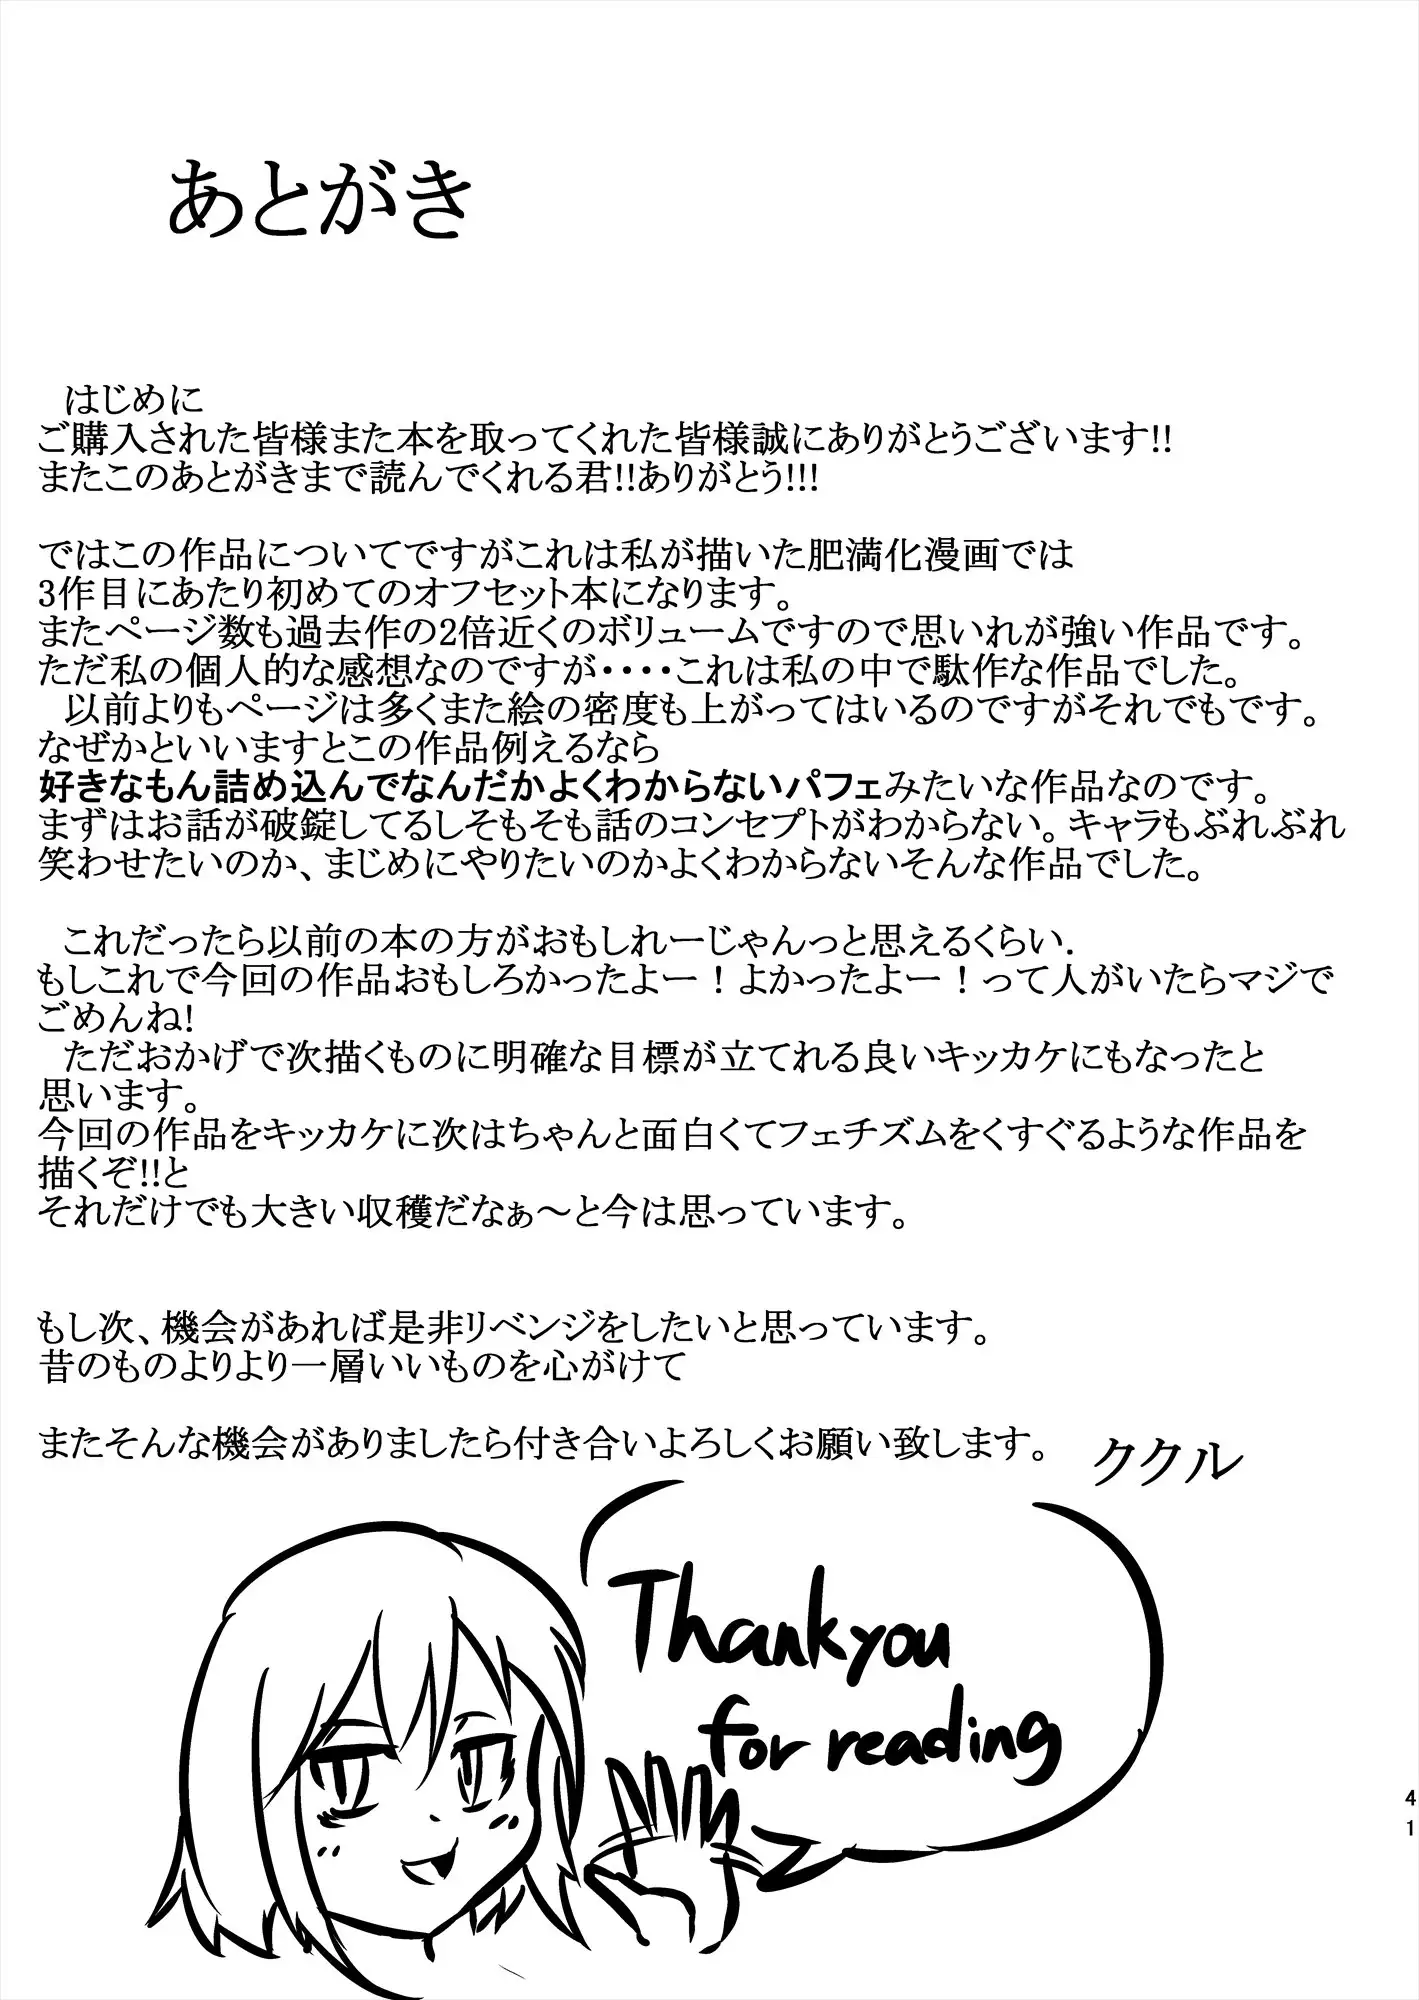 あとがき
はじめに
ご購入された皆様また本を取ってくれた皆様誠にありがとうございます!!
またこのあとがきまで読んでくれる君!!ありがとう!!!
ではこの作品についてですがこれは私が描いた肥満化漫画では
3作目にあたり初めてのオフセット本になります。
またページ数も過去作の2倍近くのボリュームですので思いれが強い作品です。
ただ私の個人的な感想なのですが・・・・これは私の中で駄作な作品でした。
以前よりもページは多くまた絵の密度も上がってはいるのですがそれでもです。
なぜかといいますとこの作品例えるなら
好きなもん詰め込んでなんだかよくわからないパフェみたいな作品なのです。
まずはお話が破錠してるしそもそも話のコンセプトがわからない。キャラもぶれぶれ
笑わせたいのか、まじめにやりたいのかよくわからないそんな作品でした。
これだったら以前の本の方がおもしれーじゃんっと思えるくらい.
もしこれで今回の作品おもしろかったよー！よかったよー！って人がいたらマジで
ごめんね!
ただおかげで次描くものに明確な目標が立てれる良いキッカケにもなったと
思います。
今回の作品をキッカケに次はちゃんと面白くてフェチズムをくすぐるような作品を
描くぞ!!と
それだけでも大きい収穫だなぁ～と今は思っています。
もし次、機会があれば是非リベンジをしたいと思っています。
昔のものよりより一層いいものを心がけて
またそんな機会がありましたら付き合いよろしくお願い致します。
ククル
Thankyou
for reading
41